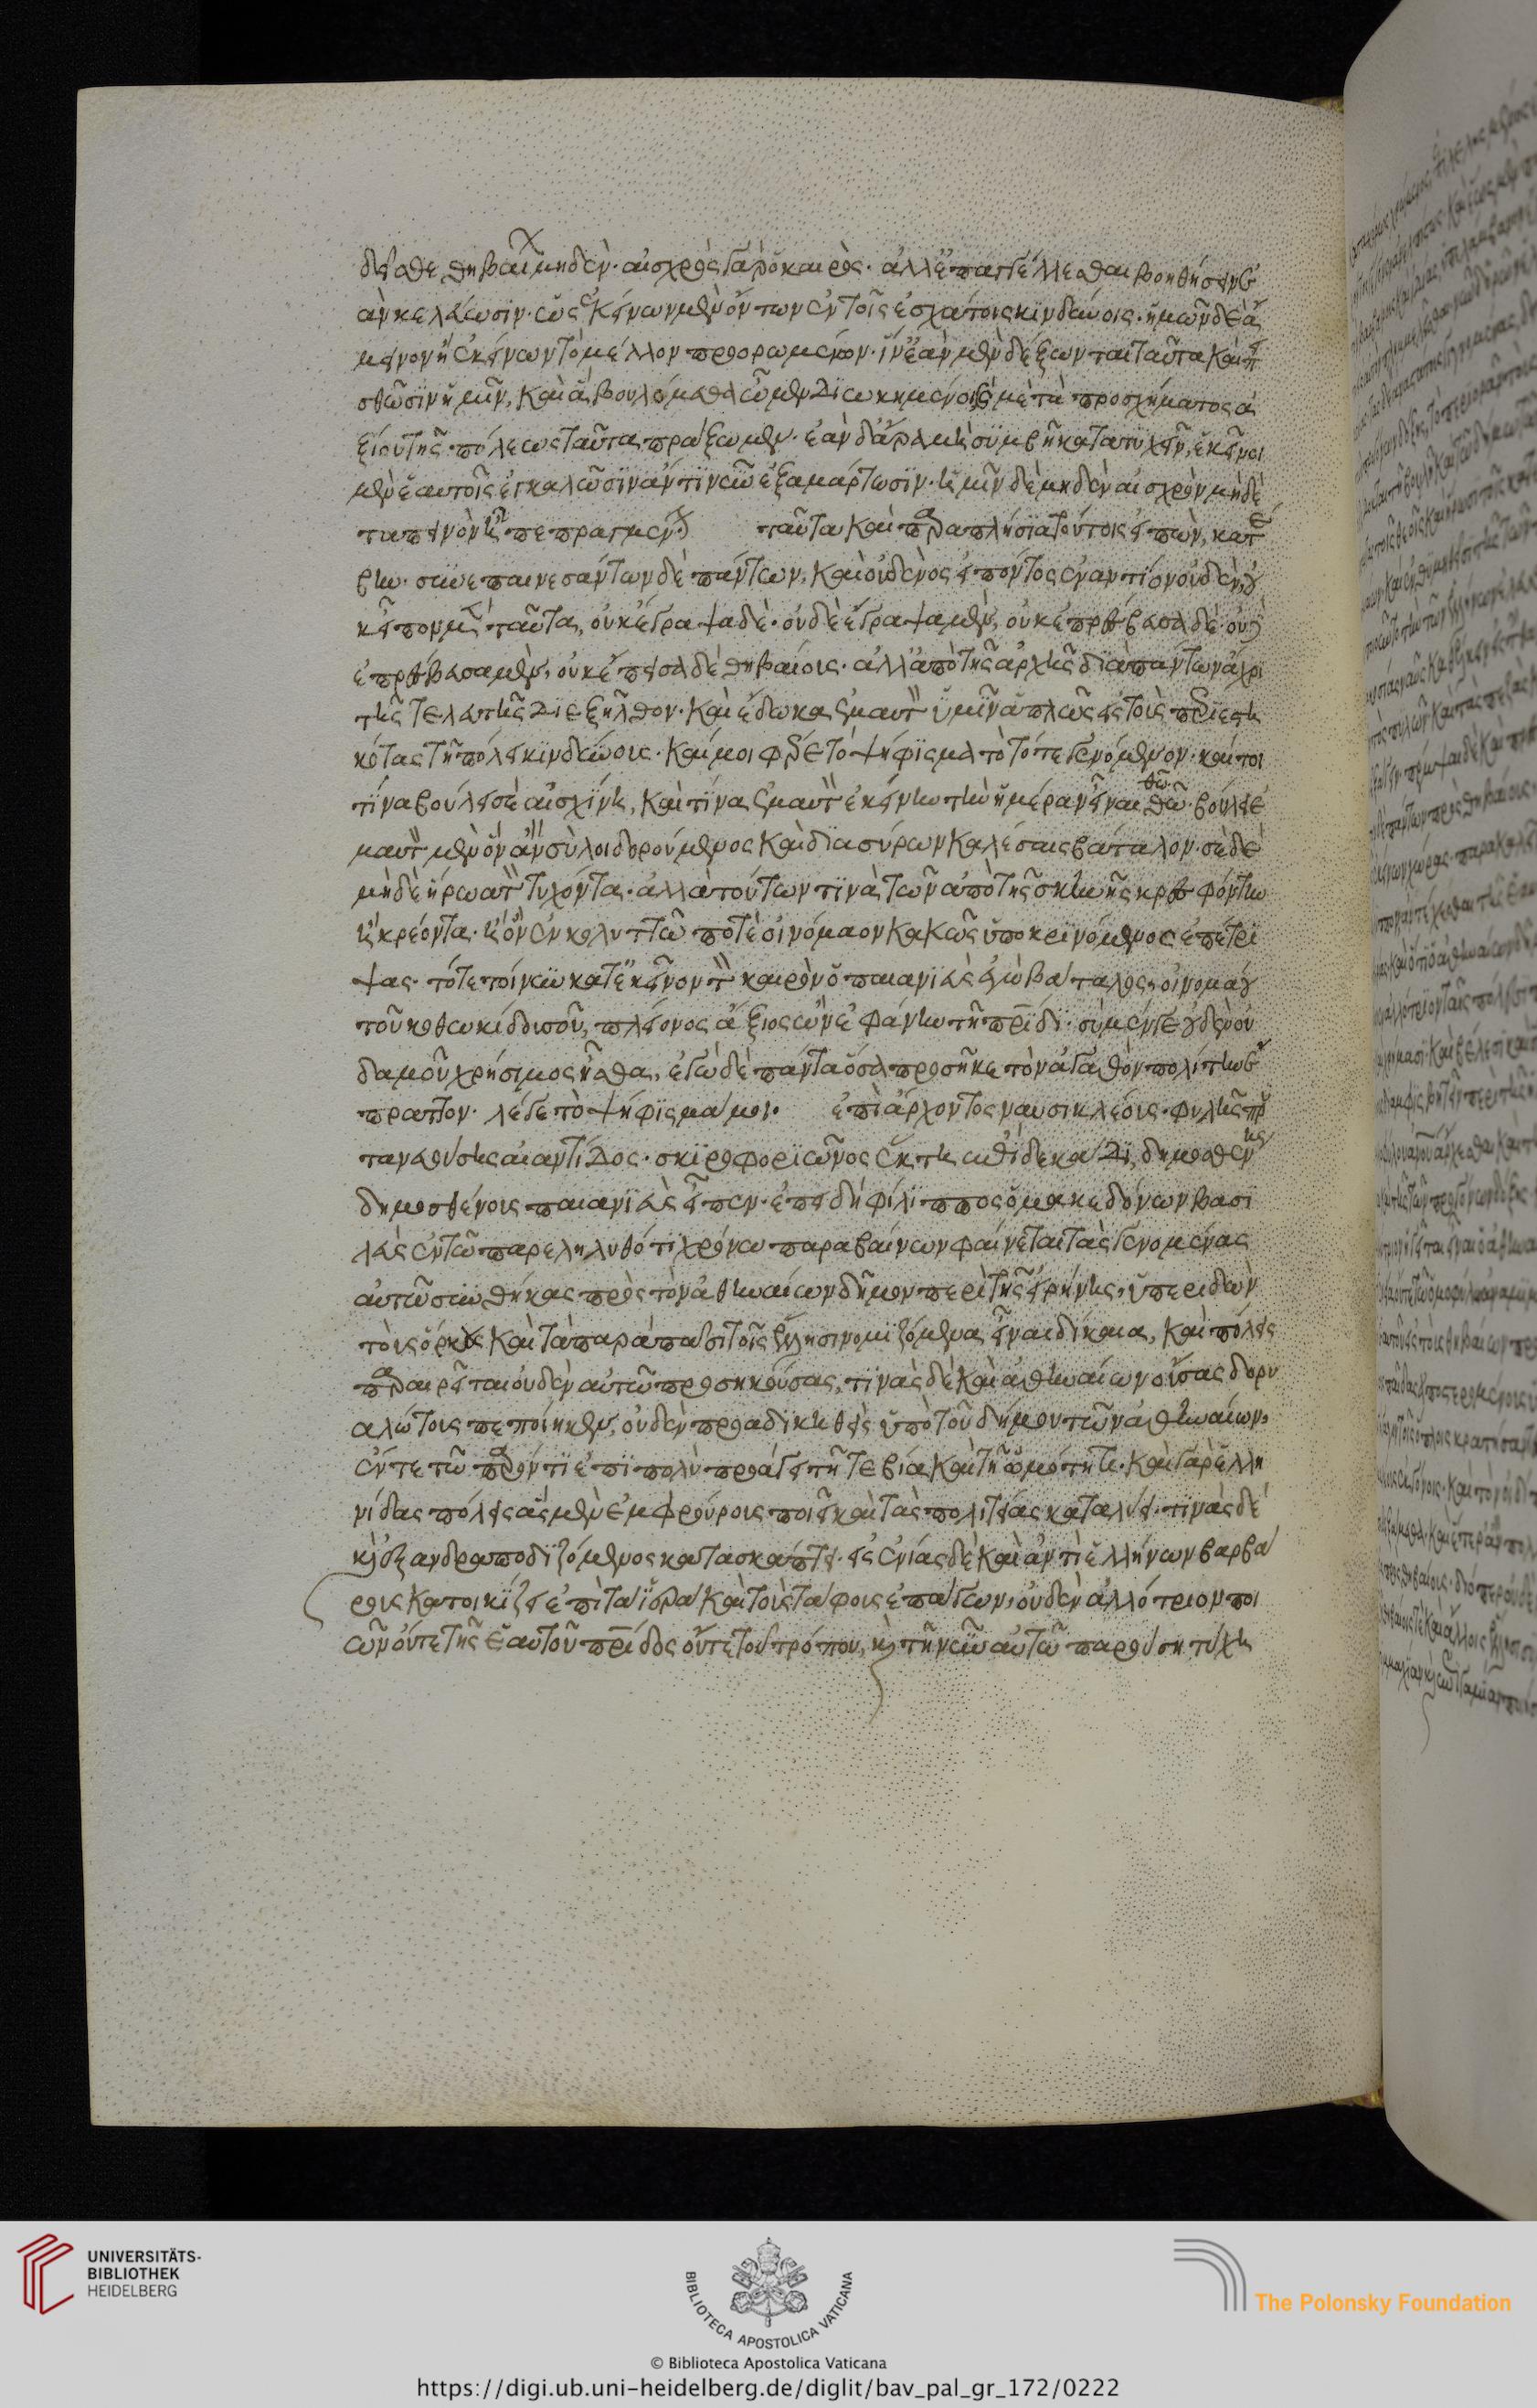 δεῖσθε θηβαίων μηδὲν· αἰσχρὸς γὰρ ὁ καιρὸς· ἀλλ' ἐπαγγέλλεσθαι βοηθήσειν ἐ
ὰν κελεύωσιν· ὡς ἐκείνων μὲν ὄντων ἐν τοῖς ἐσχάτοις κινδύνοις· ἡμῶν δὲ ἄ
μεινον ἢ ἐκείνων τὸ μέλλον προορωμένων· ἵν' ἐὰν μὲν δέξωνται ταῦτα καὶ πει
σθῶσιν ἡμῖν, καὶ ἃ βουλόμεθα ὦμεν διῳκημένοι καὶ μετὰ προσχήματος ἀ
ξίου τῆς πόλεως ταῦτα πράξωμεν· ἐὰν δ' ἄρα μὴ συμβῇ κατατυχεῖν, ἐκεῖνοι
μὲν ἑαυτοῖς ἐγκαλῶσιν ἄν τι νῦν ἐξαμάρτωσιν· ἡμῖν δὲ μηδὲν αἰσχρὸν μηδὲ
ταπεινὸν ᾖ πεπραγμένον ταῦτα καὶ παραπλήσια τούτοις εἰπὼν, κατέ
βην· συνεπαινεσάντων δὲ πάντων, καὶ οὐδενὸς εἰπόντος ἐναντίον οὐδὲν, οὐ
κ εἶπον μὲν ταῦτα, οὐκ ἔγραψα δὲ· οὐδὲ ἔγραψα μὲν, οὐκ ἐπρέσβευσα δὲ· οὐδὲ
ἐπρέσβευσα μὲν, οὐκ ἔπεισα δὲ θηβαίους· ἀλλ' ἀπὸ τῆς ἀρχῆς διὰ πάντων ἄχρι
τῆς τελευτῆς διεξῆλθον· καὶ ἔδωκα ἐμαυτὸν ὑμῖν ἁπλῶς εἰς τοὺς περιεστη
κότας τῇ πόλει κινδύνους· καί μοι φέρε τὸ ψήφισμα τὸ τότε γενόμενον· καίτοι
τίνα βούλει σὲ αἰσχίνη, καὶ τίνα ἐμαυτὸν ἐκείνην τὴν ἡμέραν εἶναι θῶ· βούλει ἐ
μαυτὸν μὲν ὃν ἂν σὺ λοιδορούμενος καὶ διασύρων καλέσαις βάταλον· σὲ δὲ
μηδὲ ἥρωα τὸν τυχόντα· ἀλλὰ τούτων τινὰ τῶν ἀπὸ τῆς σκηνῆς κρεσφόντην
ἢ κρέοντα· ἢ ὃν ἐν κολυττῷ ποτὲ οἰνόμαον κακῶς ὑποκρινόμενος ἐπέτρι
ψας· τότε τοίνυν κατ' ἐκεῖνον τὸν καιρὸν ὁ παιανιεὺς ἐγὼ βάταλος, οἰνομάου
τοῦ κοθωκίδου σοῦ, πλείονος ἄξιος ὢν ἐφάνην τῇ πατρίδι· σὺ μέν γε οὐδὲν οὐ
δαμοῦ χρήσιμος ἦσθα, ἐγὼ δὲ πάντα ὅσα προσῆκε τὸν ἀγαθὸν πολίτην ἔ
πραττον· λέγε τὸ ψήφισμά μοι. ἐπὶ ἄρχοντος ναυσικλέους· φυλῆς πρυ
τανευούσης αἰαντίδος· σκιροφοριῶνος ἕκτη μεθ' δεκάδι, δημοσθένης
δημοσθένους παιανιεὺς εἶπεν· ἐπειδὴ φίλιππος ὁ μακεδόνων βασι
λεὺς ἐν τῷ παρεληλυθότι χρόνῳ παραβαίνων φαίνεται τὰς γενομένας
αὐτῷ συνθήκας πρὸς τὸν ἀθηναίων δῆμον περὶ τῆς εἰρήνης, ὑπεριδὼν
τοὺς ὅρκους καὶ τὰ παρὰ πᾶσι τοῖς ἕλλησι νομιζόμενα εἶναι δίκαια, καὶ πόλεις
παραιρεῖται οὐδὲν αὐτῷ προσηκούσας, τινὰς δὲ καὶ ἀθηναίων οὔσας δορυ
αλώτους πεποίηκεν, οὐδὲν προαδικηθεὶς ὑπὸ τοῦ δήμου τῶν ἀθηναίων,
ἔν τε τῷ παρόντι ἐπὶ πολὺ προάγει τῇ τε βίᾳ καὶ τῇ ὠμότητι· καὶ γὰρ ἑλλη
νίδας πόλεις ἃς μὲν ἐμφρούρους ποιεῖ καὶ τὰς πολιτείας καταλύει· τινὰς δὲ
καὶ ἐξανδραποδιζόμενος κατασκάπτει· εἰς ἐνίας δὲ καὶ ἀντὶ ἑλλήνων βαρβά
ρους κατοικίζει ἐπὶ τὰ ἱερὰ καὶ τοὺς τάφους ἐπάγων, οὐδὲν ἀλλότριον ποι
ῶν οὔτε τῆς ἑαυτοῦ πατρίδος οὔτε τοῦ τρόπου, καὶ τῇ νῦν αὐτῷ παρούσῃ τύχῃ
UNIVERSITÄTS-
BIBLIOTHEK
HEIDELBERG
BIBLIOTECA APOSTOLICA VATICANA
The Polonsky Foundation
© Biblioteca Apostolica Vaticana
https://digi.ub.uni-heidelberg.de/diglit/bav_pal_gr_172/0222